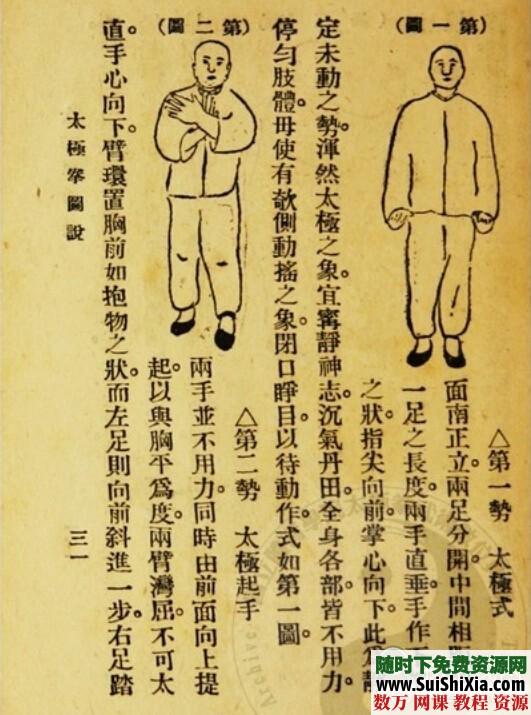 （第一圖）
△第一勢　太極式
面南正立。兩足分開。中間相
一足之長度。兩手直垂。手作
之狀。指尖向前。掌心向下。此
定未動之勢。渾然太極之象。宜寧靜神志。沉氣丹田。全身各部。皆不用力。
停勻肢體。毋使有欹側動搖之象。閉口睜目。以待動作。式如第一圖。
（第二圖）
△第二勢　太極起手
兩手並不用力。同時由前面向上提
起。以與胸平爲度。兩臂灣屈。不可太
直。手心向下。臂環置胸前如抱物之狀。而左足則向前斜進一步。右足踏
太極拳圖說　三一
随时下免费资源网
www.SuiShiXia.com
数万 网课 教程 资源